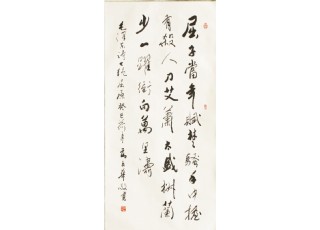 屈子當年賦楚騷手中握
有殺人刀艾蕭太盛椒蘭
少一躍衝向萬里濤
毛澤東詩七絕屈原